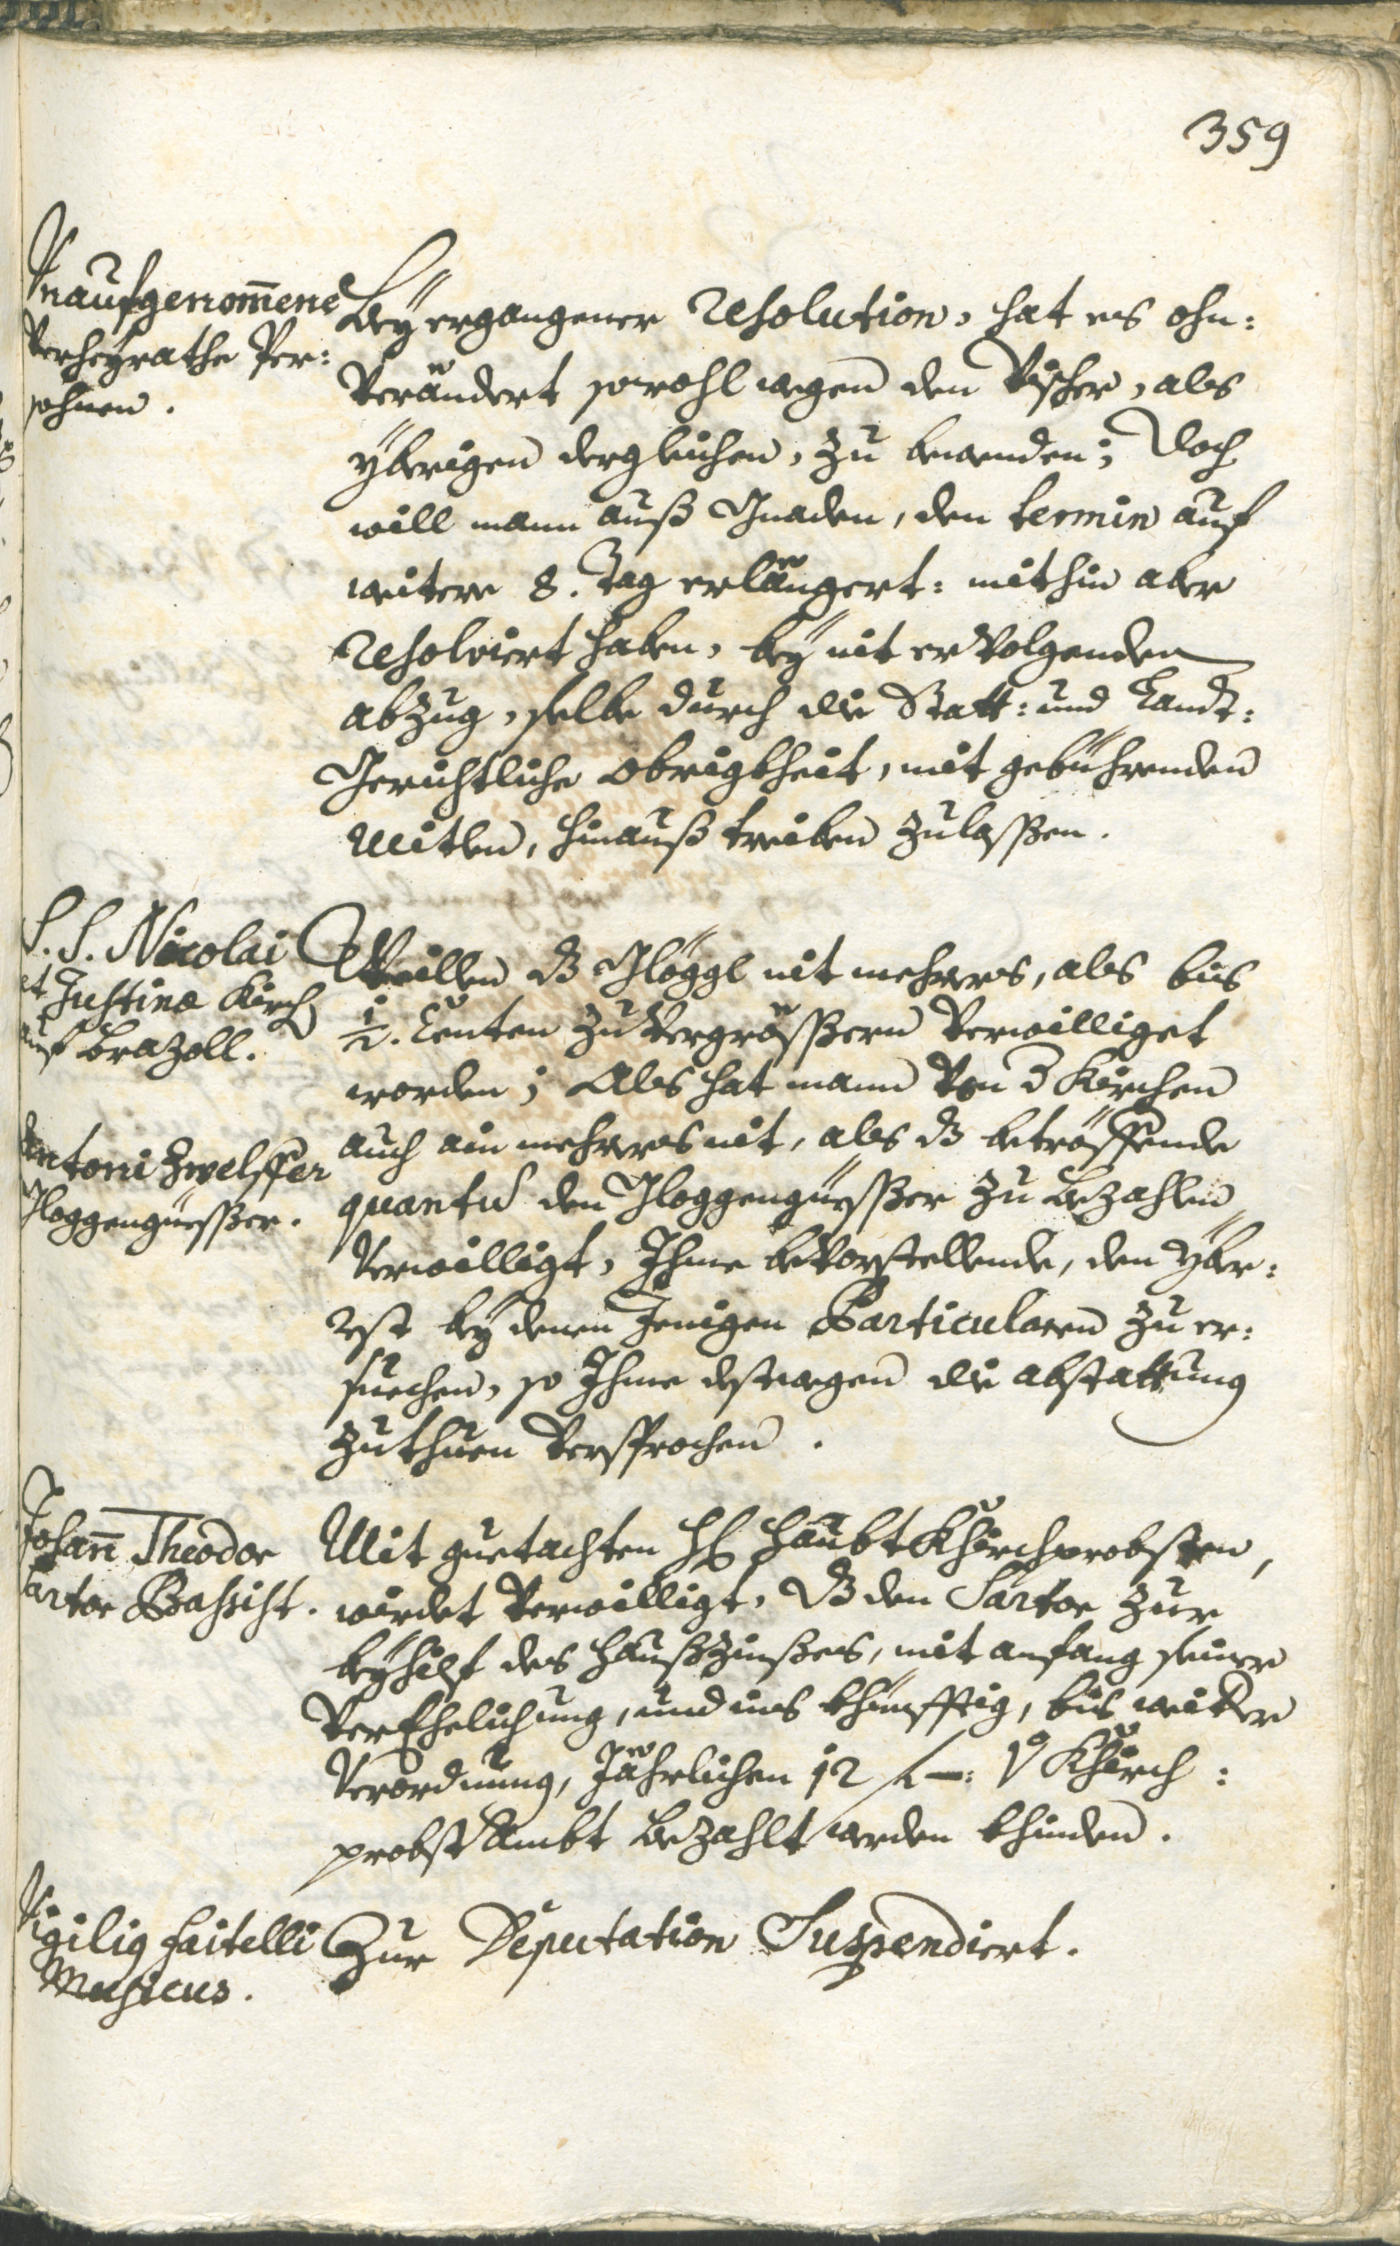 359
Vnaufgenom̄ene
Verheÿrathe Per:
sohnen.
Beÿ ergangener Resolution, hat es ohn:
Verändert sowohl wegen den Vischer, als
yberigen dergleichen, zu bewenden; Doch
will mann auß Gnaden, den termin auf
weitere 8. Tag erlängert: mithin aber
Resolviert haben, beÿ nit ervolgenden
abzug, selbe durch die Statt: und Landt:
Gerichtliche Obrigkheit, mit gebührenden
Mitlen, hinauß treiben zulaßen.
S. S. Nicolai
et Justina Kirch
auf Prazoll.
Weillen dz Glöggl nit mehrers, als bis
½. Centen zuvergrößern Verwilliget
worden; Als hat mann von d Kirchen
Antoni Zwelffer
Gloggengüeßer.
auch ain mehrers nit, als dz betröffende
quantu den Gloggengüeßer zu bezahlen
Verwilligt, Ihme bevorstellende, den yber:
Rest beÿ denen Jenigen Particularen zu er:
suechen, so Ihme destwegen die abstattung
zuthuen Versprochen.
Johan̄ Theodor
Sartor Bassist.
Mit guetachten H Haubt Khirchprobsten,
wirdet Verwilligt, dz den Sartor zur
beÿhilf des Haußzinßes, mit anfang seiner
VerEhelichung, und ins khünfftig, bis weitere
Verordnung, Jährlichen 12 f —: Khirch:
probst Ambt bezahlt werden khinden.
Vigilig Faitelli
Musicus.
Zur Deputation Suspendiert.